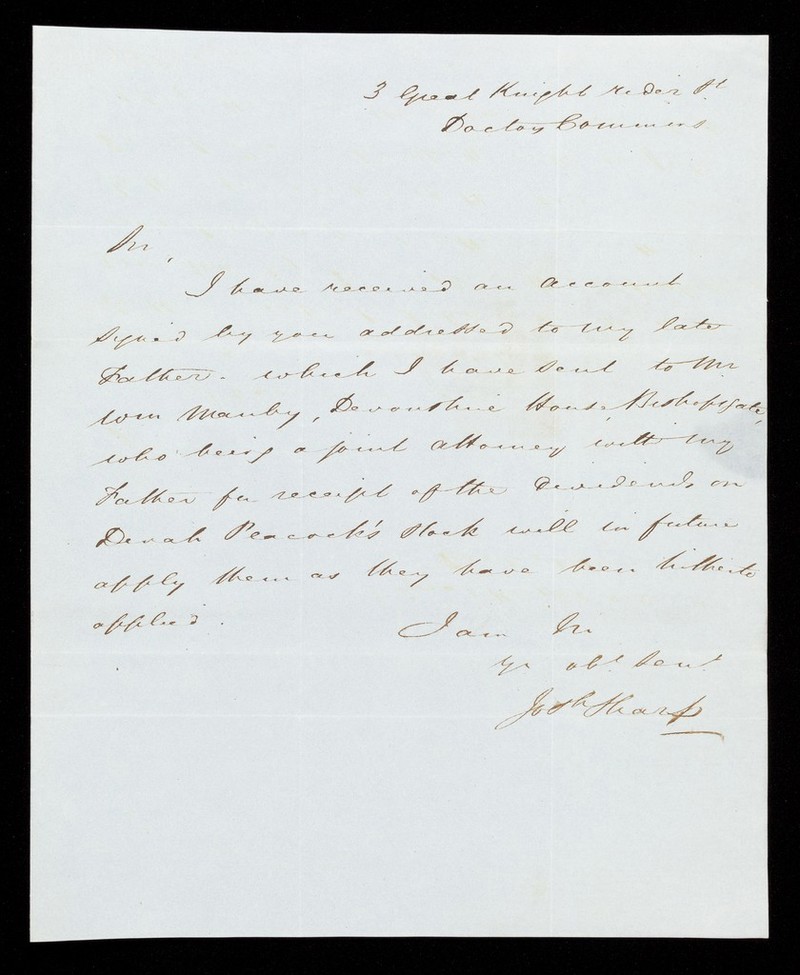 3 Great Knight rider St
Doctors Commons
Sir,
I have received an account
signed by you addressed to my late
Father - which I have sent to Mr
Wm Manby, Devonshire House, Bishopsgate,
who being a joint attorney with my
Father for receipt of the Dividends on
Peacock's Stock will in future
apply them as they have been hitherto
applied.
I am Sir
Yr obt Servt
Josh Sharp